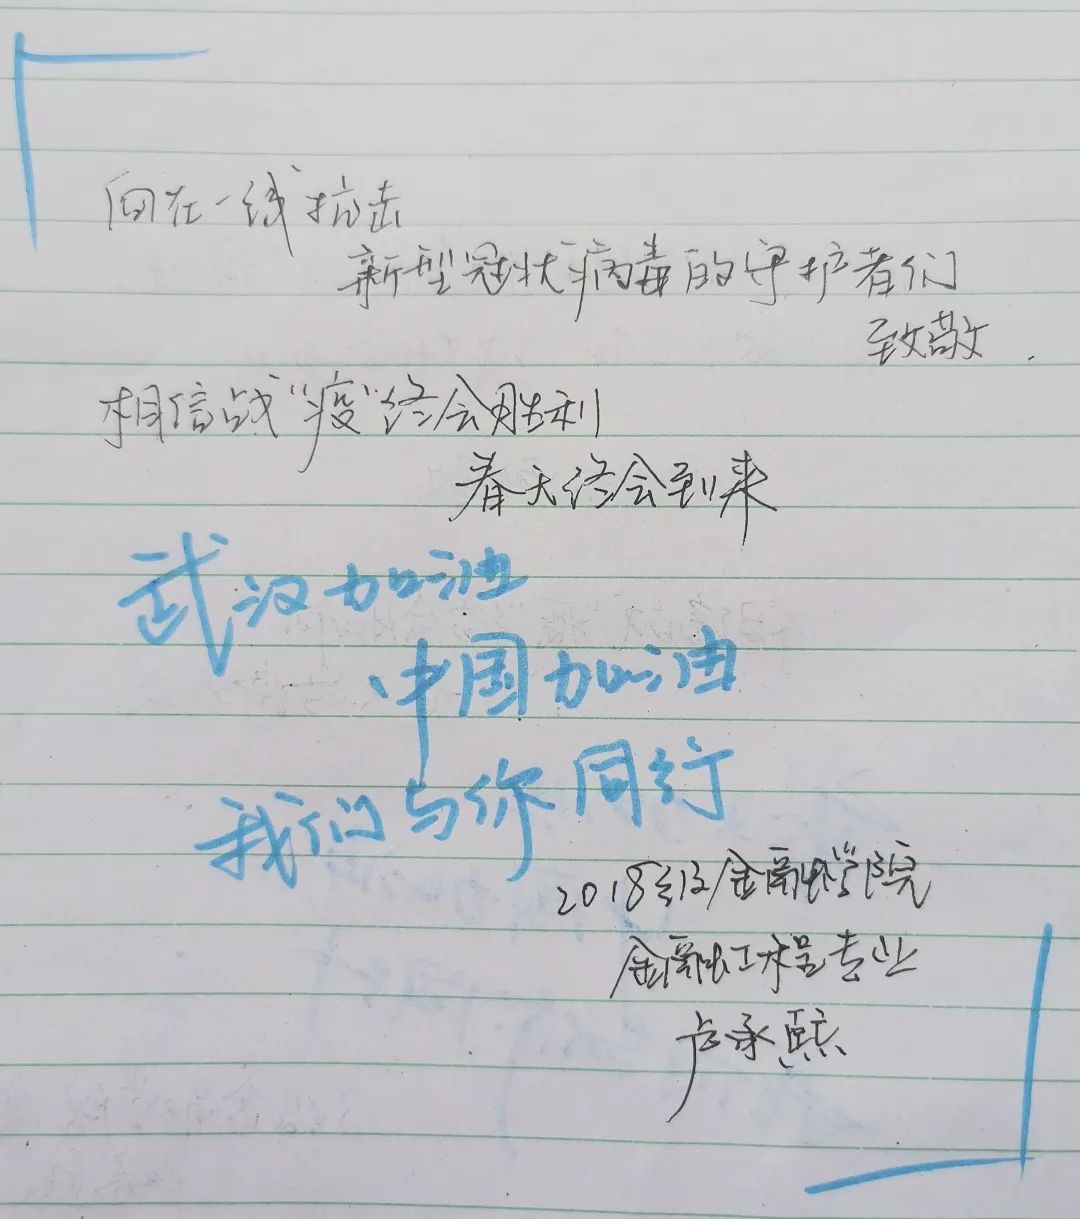 向在一线抗击
新型冠状病毒的守护者们
致敬.
相信战“疫”终会胜利
春天终会到来
武汉加油
中国加油
我们与你同行
2018级金融学院
金融工程专业
卢承